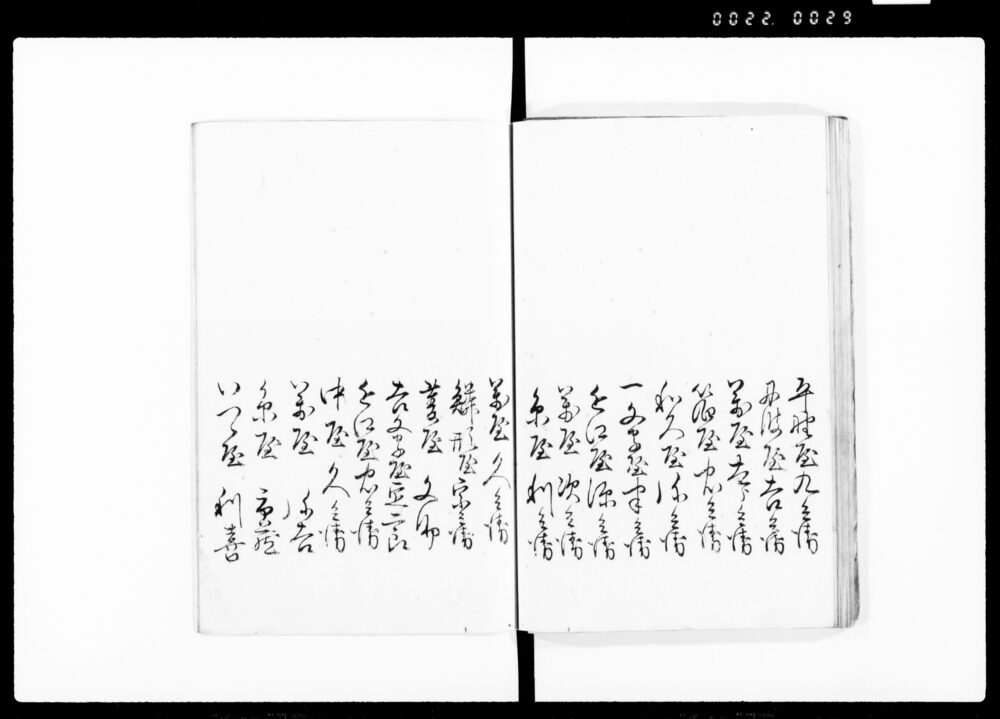 0022. 0029
平野屋九兵衛
丹波屋吉兵衛
萬屋吉兵衛
屋忠兵衛
和久屋弥兵衛
一文字屋兵衛
近江屋源兵衛
萬屋次兵衛
糸屋利兵衛
萬屋久兵衛
屋宗兵衛
菱屋文助
吉文字屋
近江屋忠兵衛
沖屋久兵衛
萬屋弥吉
糸屋
いつゝ屋利喜